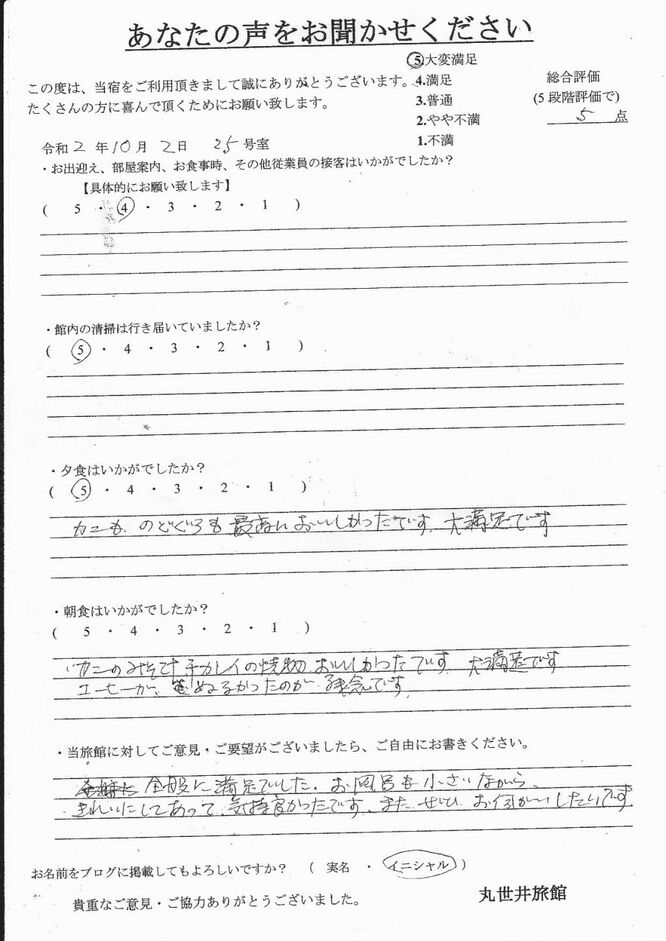 あなたの声をお聞かせください
この度は、当宿をご利用頂きまして誠にありがとうございます。
たくさんの方に喜んで頂くためにお願い致します。
⑤大変満足
4.満足
3.普通
2.やや不満
1.不満
総合評価
(5段階評価で)
5 点
令和 2 年 10 月 2 日 25 号室
・お出迎え、部屋案内、お食事時、その他従業員の接客はいかがでしたか？
【具体的にお願い致します】
( 5 ・ ④ ・ 3 ・ 2 ・ 1 )
・館内の清掃は行き届いていましたか？
( ⑤ ・ 4 ・ 3 ・ 2 ・ 1 )
・夕食はいかがでしたか？
( ⑤ ・ 4 ・ 3 ・ 2 ・ 1 )
カニも、のどぐろも最高においしかったです。大満足です
・朝食はいかがでしたか？
( 5 ・ 4 ・ 3 ・ 2 ・ 1 )
カニのみそ汁、干カレイの焼物 おいしかったです。大満足です
コーヒーが、ぬるかったのが、残念です。
・当旅館に対してご意見・ご要望がございましたら、ご自由にお書きください。
全般に満足でした。お風呂も小さいながら、
きれいにしてあって、気持良かったです。また、ぜひ、お伺いしたいです。
お名前をブログに掲載してもよろしいですか？ ( 実名 ・ イニシャル )
貴重なご意見・ご協力ありがとうございました。
丸世井旅館